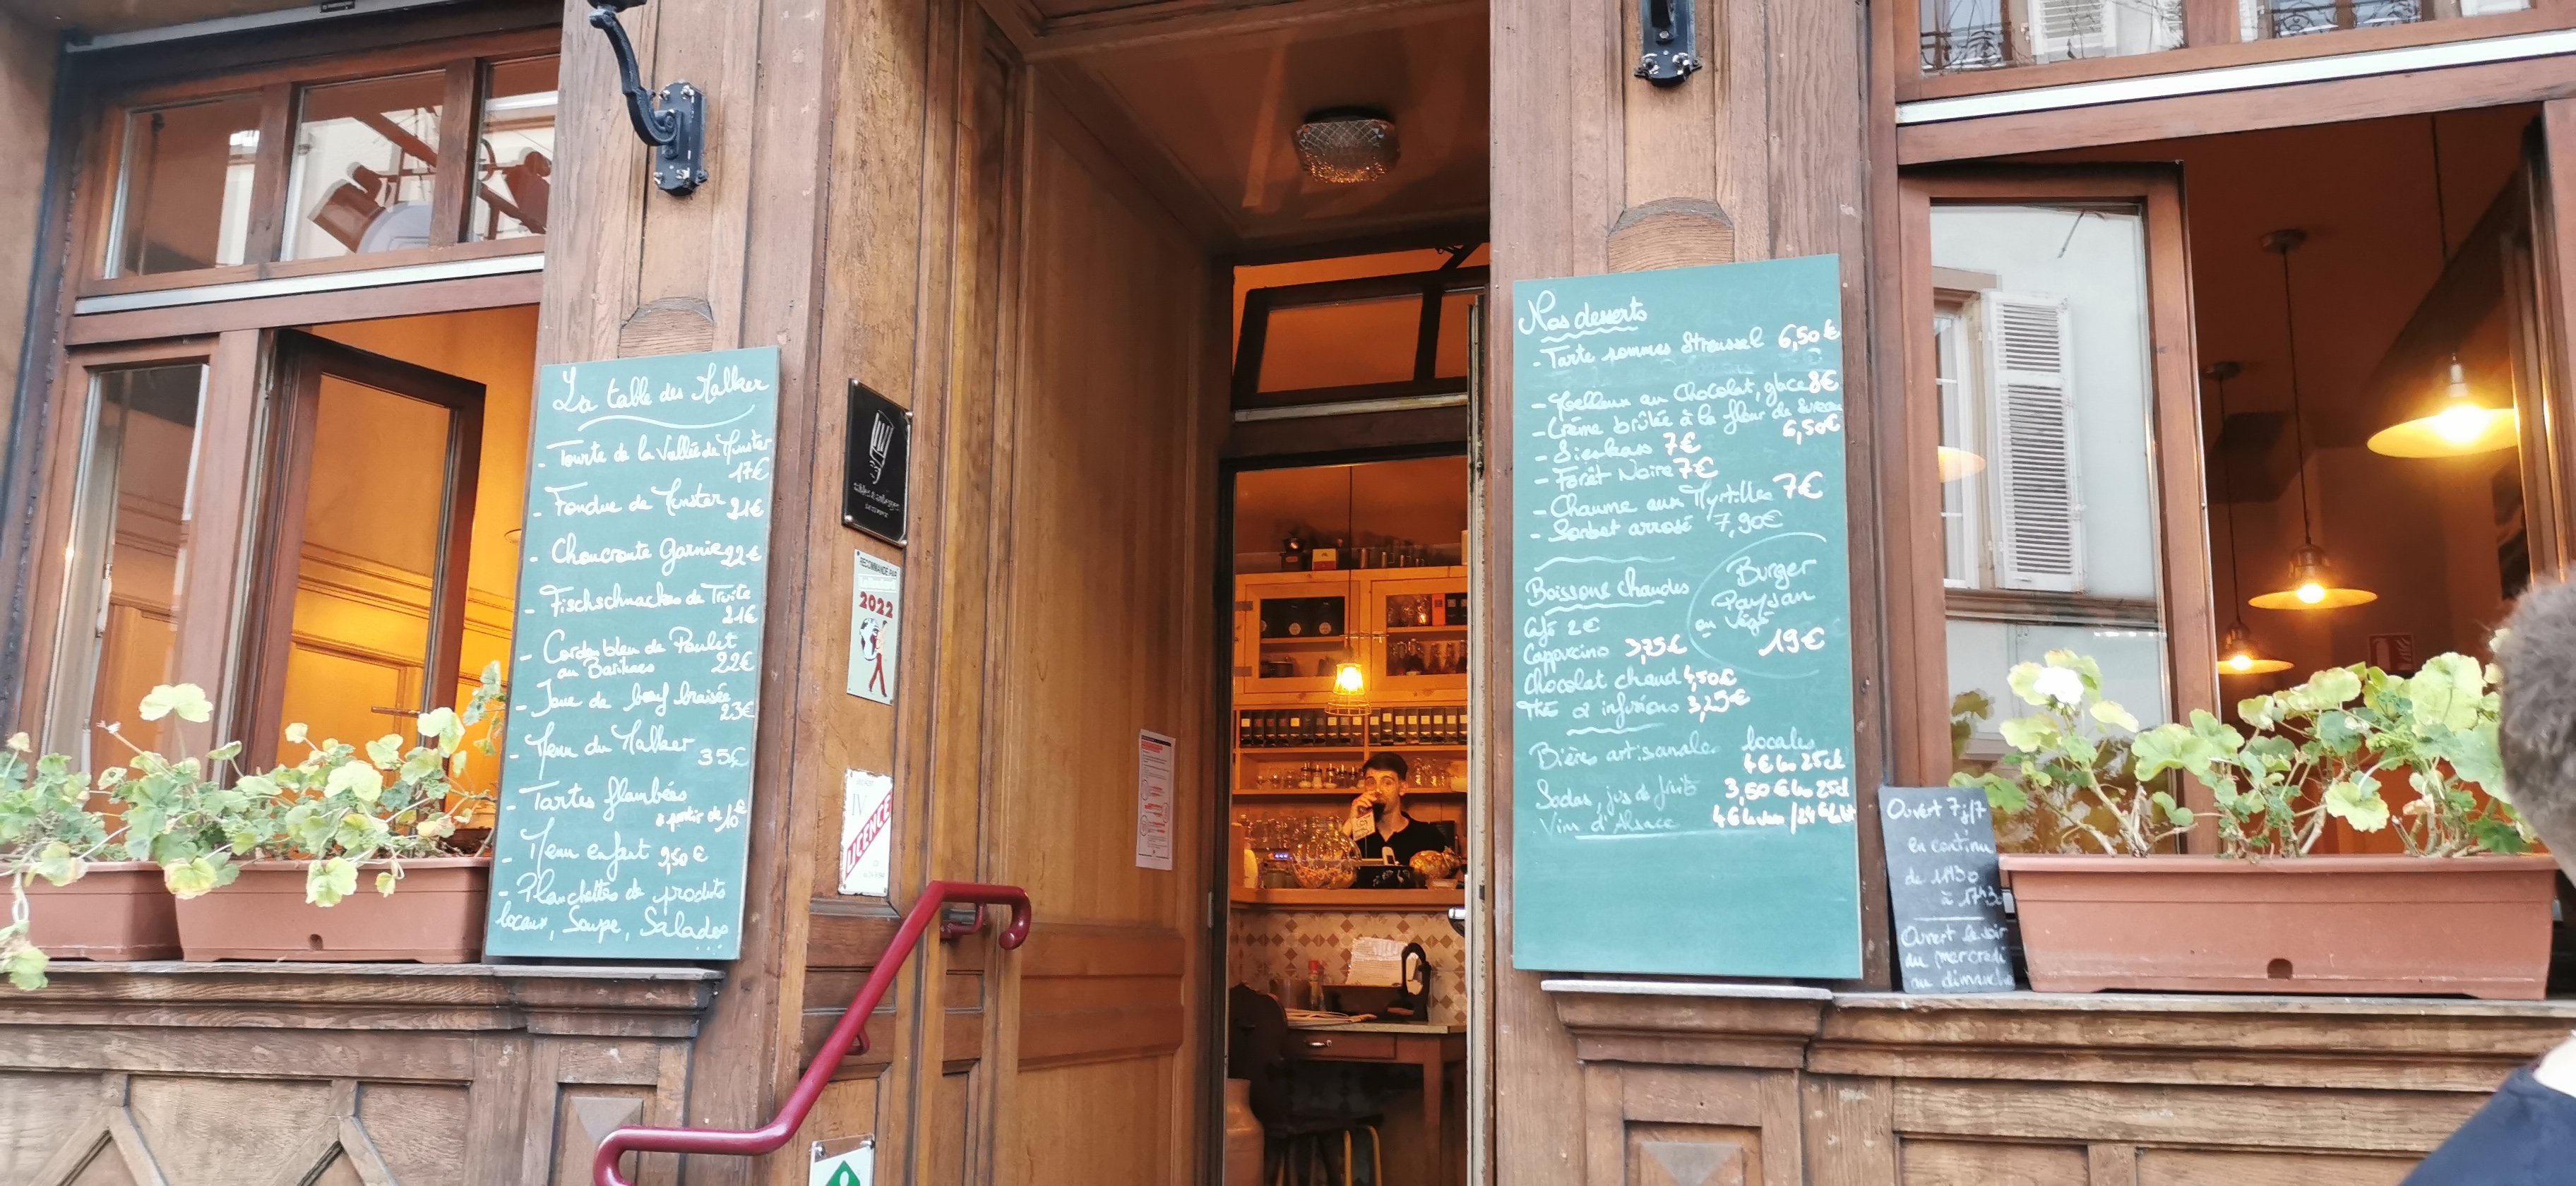 La table des Malker
- Tourte de la Vallée de Munster
17€
- Fondue de Munster 21€
- Choucroute Garnie 22€
- Fischschnackas de Truite
21€
- Cordon bleu de Poulet
au Barikass 22€
- Joue de bœuf braisée
23€
- Menu du Malker 35€
- Tartes flambées
à partir de 10€
- Menu enfant 9,50€
- Planchettes de produits
locaux, Soupe, Salades
...
RECOMMANDÉ PAR
2022
IV
LICENCE
Nos desserts
- Tarte pommes Streussel 6,50€
- Moelleux au Chocolat, glace 8€
- Crème brûlée à la fleur de sureau
6,50€
- Sieskass 7€
- Forêt Noire 7€
- Chaume aux Myrtilles 7€
- Sorbet arrosé 7,90€
Burger
Paysan
ou végé
19€
Boissons chaudes
Café 2€
Cappuccino 3,75€
Chocolat chaud 4,50€
Thé & infusions 3,25€
Bières artisanales locales
4€ les 25cl
Sodas, jus de fruits 3,50€ les 25cl
Vin d'Alsace 4€ le verre /
Ouvert 7j/7
en continu
de 11H30
à 17H30
Ouvert le soir
du mercredi
au dimanche